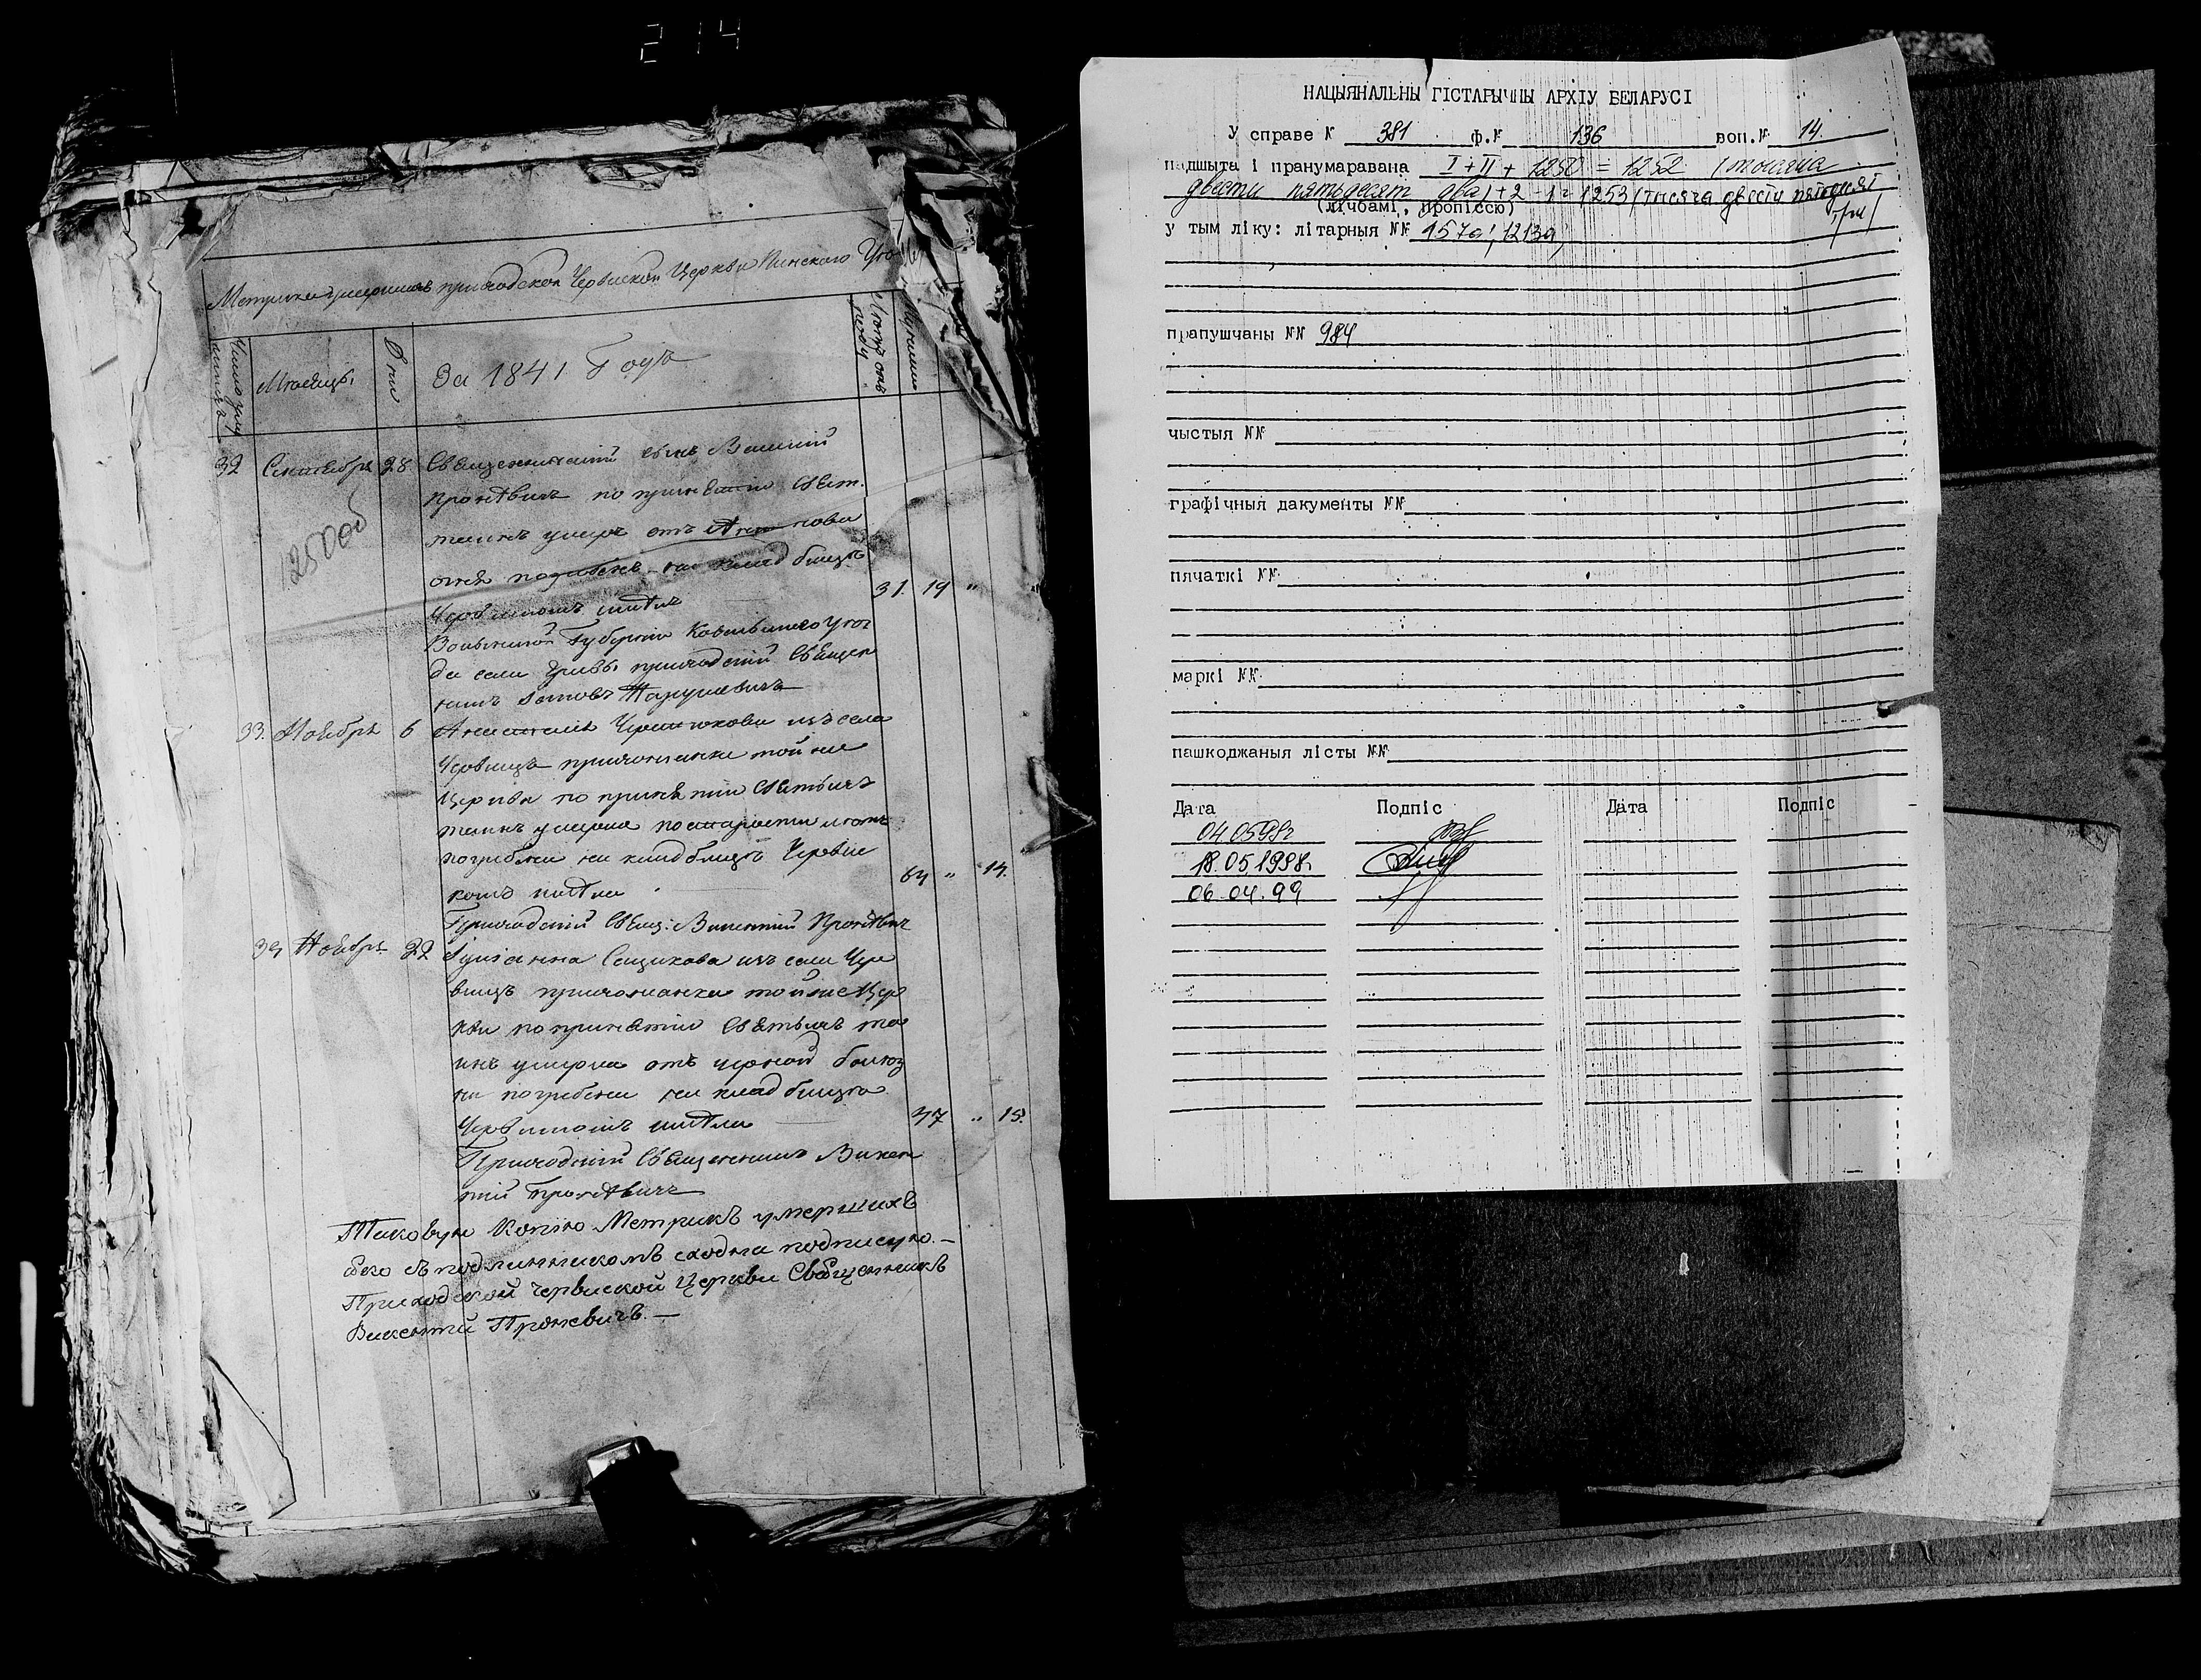 214
Метрика умершихъ приходской Червиской Церкви Пинского Уез
Число умершихъ
Месяцъ
Дни
За 1841 Годъ
Лета отъ роду
32 Сентебря 28 Священический сынъ
Проневичъ по принетии Свет.
таинъ умре отъ
огня погребенъ на кладбищъ
Червискомъ 31. 19 "
Волынской Губернии Ковельского Уез
да села приходский Свещен
никъ
1250об
33. Ноебря 6 Анастасия изъ села
Червищъ прихожанка той же
Церкви по принетии Светыхъ
таинъ умерла по старости летъ
погребена на кладбищъ Червис
комъ 64 " 14.
Приходский Свещ: Викентий Проневичъ
34 Ноебря 22 Сацикова изъ села Чер
вищъ прихожанка той же Цер
кви по принетии Светыхъ та
инъ умерла отъ черной болез
ни погребена на кладбищъ
Червискомъ 47 " 15.
Приходский Священникъ Викен
тий Проневичъ
Таковую Копию Метрикъ умершихъ
яко съ подлинникомъ сходна подписую.—
Приходской Червиской Церкви Свещенникъ
Викентий Проневичъ.—
НАЦЫЯНАЛЬНЫ ГІСТАРЫЧНЫ АРХІУ БЕЛАРУСІ
У справе № 381 ф.№ 136 воп.№ 14.
падшыта і пранумаравана I+II+1250=1252 (тысяча
двести пятьдесят два)+2-1=1253(тысяча двести пятьдесят
(лічбамі, пропіссю) три)
у тым ліку: літарныя №№ 957а; 1213а;
прапушчаны №№ 984
чыстыя №№
графічныя дакументы №№
пячаткі №№
маркі №№
пашкоджаныя лісты №№
Дата Подпіс Дата Подпіс
04.05.98г
18.05.1998г.
06.04.99